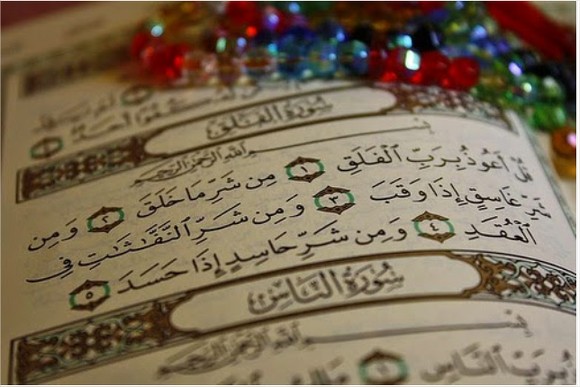 كُفُوًا أَحَدٌ
سُورَةُ الفَلَقِ
بِسْمِ ٱللَّهِ ٱلرَّحْمَٰنِ ٱلرَّحِيمِ
قُلْ أَعُوذُ بِرَبِّ ٱلْفَلَقِ ١ مِن شَرِّ مَا خَلَقَ ٢ وَمِن
شَرِّ غَاسِقٍ إِذَا وَقَبَ ٣ وَمِن شَرِّ ٱلنَّفَّٰثَٰتِ فِى
ٱلْعُقَدِ ٤ وَمِن شَرِّ حَاسِدٍ إِذَا حَسَدَ ٥
سُورَةُ النَّاسِ
بِسْمِ ٱللَّهِ ٱلرَّحْمَٰنِ ٱلرَّحِيمِ
بِرَبِّ ٱلنَّاسِ ١